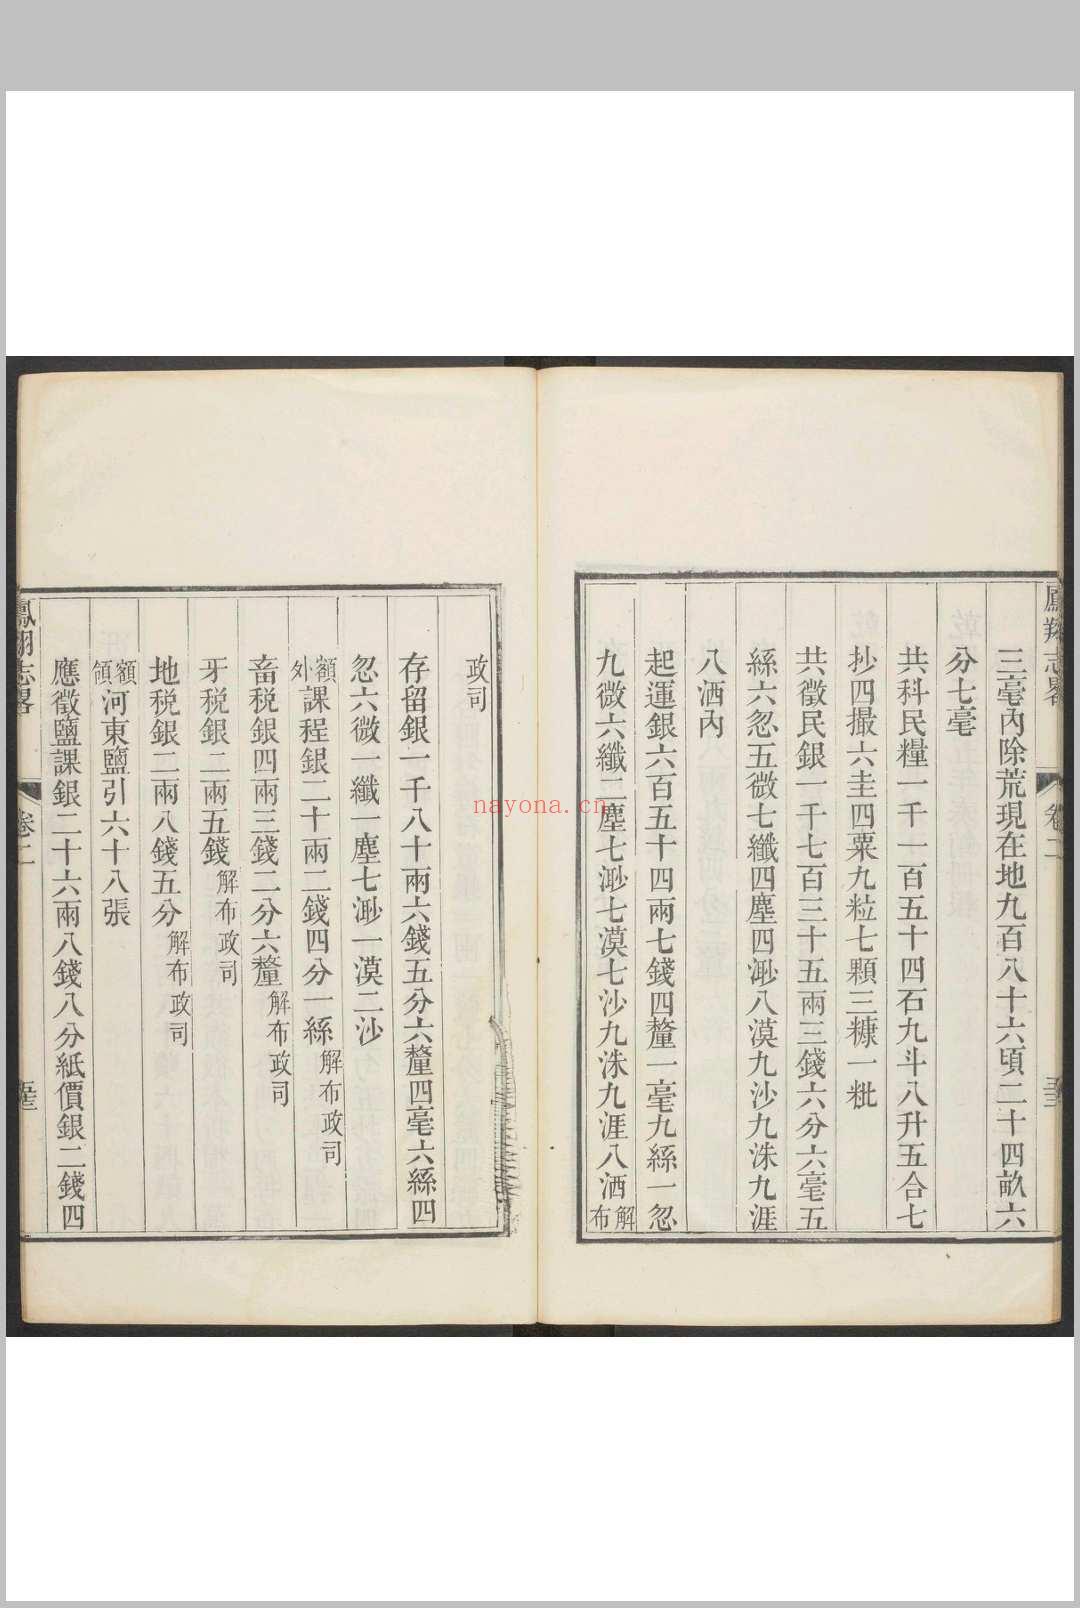 鳳翔志畧
卷二
三毫內除荒現在地九百八十六頃二十四畝六
分七毫
共科民糧一千一百五十四石九斗八升五合七
抄四撮六圭四粟九粒七顆三糠一粃
共徵民銀一千七百三十五兩三錢六分六毫五
絲六忽五微七纖四塵四渺八漠九沙九洙九涯
八洒內
起運銀六百五十四兩七錢四釐一毫九絲一忽
九微六纖二塵七渺七漠七沙九洙九涯八洒解布
政司
存留銀一千八十兩六錢五分六釐四毫六絲四
忽六微一纖一塵七渺一漠二沙
額外課程銀二十兩二錢四分一絲解布政司
畜税銀四兩三錢二分六釐解布政司
牙税銀二兩五錢解布政司
地税銀二兩八錢五分解布政司
額領河東鹽引六十八張
應徵鹽課銀二十六兩八錢八分紙價銀二錢四
鳳翔志畧
卷二
nayona.cn